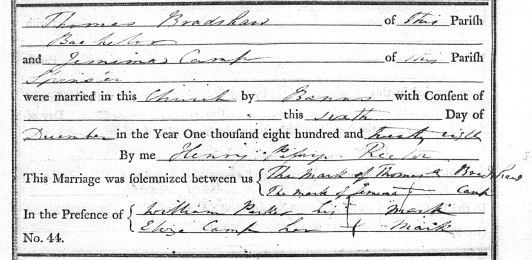 Thomas Bradshaw of this Parish
Bachelor
and Jemima Camp of this Parish
Spinster
were married in this Church by Banns with Consent of
this sixth Day of
December in the Year One thousand eight hundred and twenty eight
By me Henry Rector
This Marriage was solemnized between us { The mark of Thomas Bradshaw
The mark of Jemima Camp
In the Presence of { William Parker his mark
Eliza Camp her mark
No. 44.